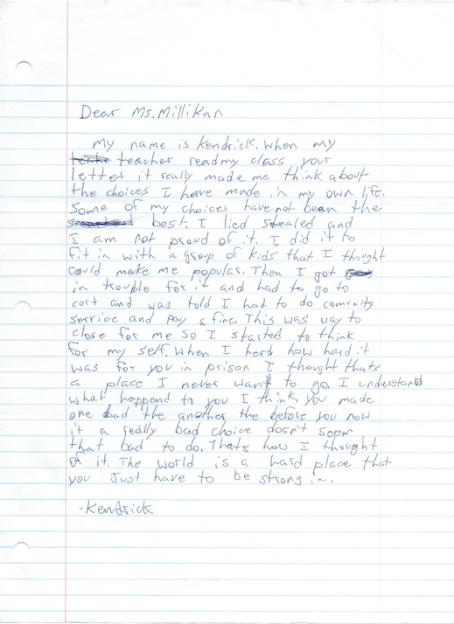 Dear Ms. Millikan
My name is Kendrick. When my
teacher read my class your
letter it really made me think about
the choices I have made in my own life.
Some of my choices have not been the
best. I lied stealed and
I am not proud of it. I did it to
fit in with a group of kids that I thought
could make me popular. Then I got
in trouble for it and had to go to
cort and was told I had to do comunity
service and pay a fine. This was way to
close for me. So I started to think
for my self. When I herd how hard it
was for you in prison I thought thats
a place I never want to go. I understand
what happend to you I think you made
one bad the another the before you now
it a really bad choice dosn't seem
that bad to do. Thats how I thought
of it. The world is a hard place that
you Just have to be strong in.
-Kendrick